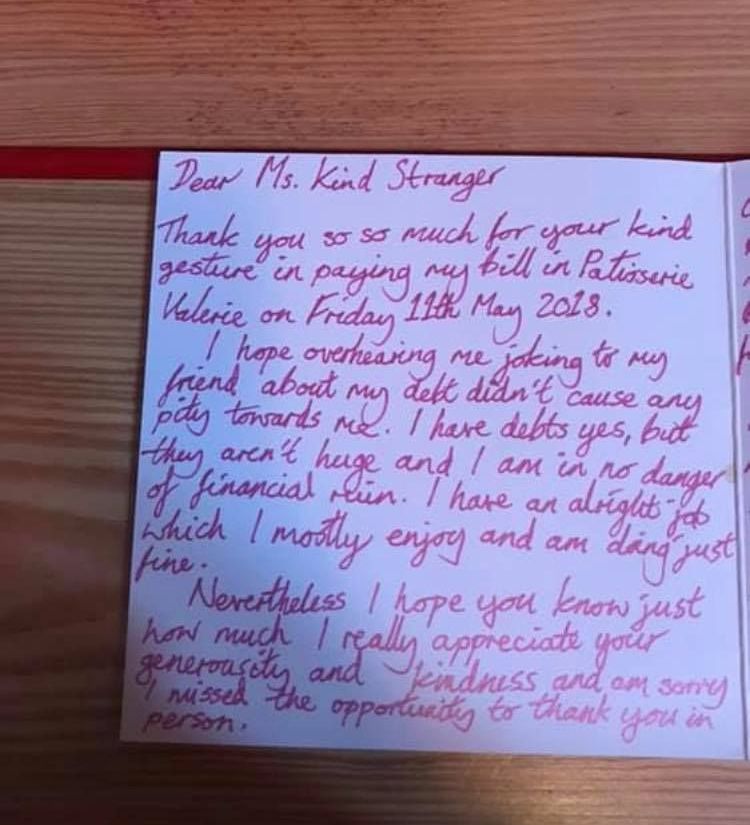 Dear Ms. Kind Stranger
Thank you so so much for your kind
gesture in paying my bill in Patisserie
Valerie on Friday 11th May 2018.
I hope overhearing me joking to my
friend about my debt didn't cause any
pity towards me. I have debts yes, but
they aren't huge and I am in no danger
of financial ruin. I have an alright job
which I mostly enjoy and am doing just
fine.
Nevertheless I hope you know just
how much I really appreciate your
generousity and kindness and am sorry
I missed the opportunity to thank you in
person.